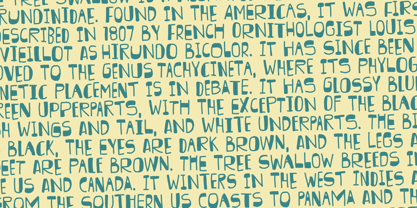 TREE SWALLOW IS A
RUNDINIDAE. FOUND IN THE AMERICAS, IT WAS FIRS
DESCRIBED IN 1807 BY FRENCH ORNITHOLOGIST LOUIS
VIEILLOT AS HIRUNDO BICOLOR. IT HAS SINCE BEEN
OVED TO THE GENUS TACHYCINETA, WHERE ITS PHYLOG
NETIC PLACEMENT IS IN DEBATE. IT HAS GLOSSY BLU
REEN UPPERPARTS, WITH THE EXCEPTION OF THE BLAC
H WINGS AND TAIL, AND WHITE UNDERPARTS. THE BI
BLACK, THE EYES ARE DARK BROWN, AND THE LEGS A
EET ARE PALE BROWN. THE TREE SWALLOW BREEDS I
E US AND CANADA. IT WINTERS IN THE WEST INDIES A
FROM THE SOUTHERN US COASTS TO PANAMA AND TH